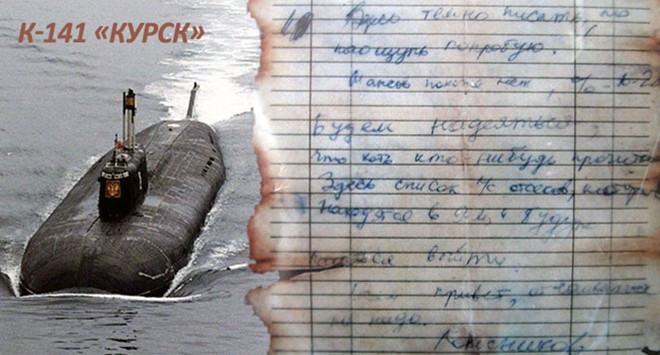 К-141 «КУРСК»
Здесь темно писать, но
наощупь попробую.
Шансов похоже нет, %-10-20
Будем надеяться,
что хоть кто нибудь прочитает
Здесь список л/с отсеков, которые
находятся в 9-м, и будут
выйти.
Всем привет, отчаиваться
не надо.
Колесников